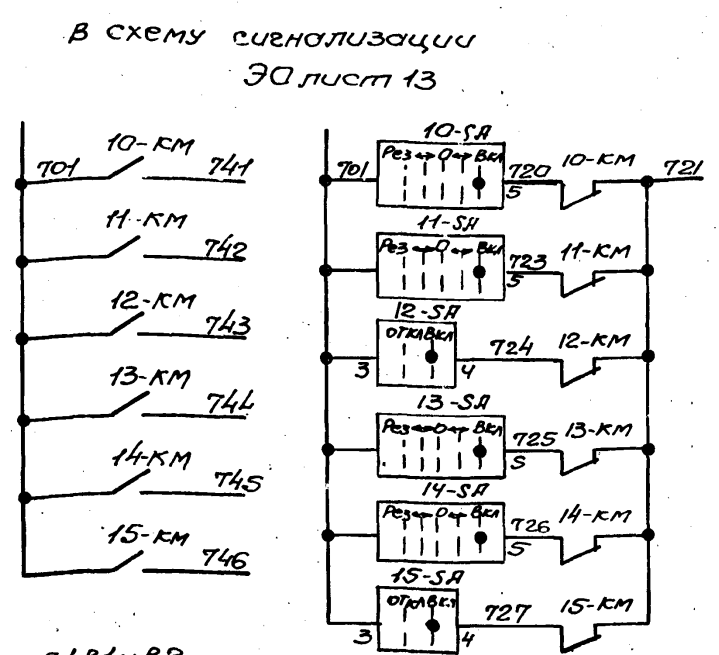 В схему сигнализации
ЭО лист 13
10-КМ
701 741
11-КМ
742
12-КМ
743
13-КМ
744
14-КМ
745
15-КМ
746
10-SA
701 Рез ↔ О ↔ Вкл 720 10-КМ 721
5
11-SA
Рез ↔ О ↔ Вкл 723 11-КМ
5
12-SA
ОТКЛ ВКЛ 724 12-КМ
3 4
13-SA
Рез ↔ О ↔ Вкл 725 13-КМ
5
14-SA
Рез ↔ О ↔ Вкл 726 14-КМ
5
15-SA
ОТКЛ ВКЛ 727 15-КМ
3 4